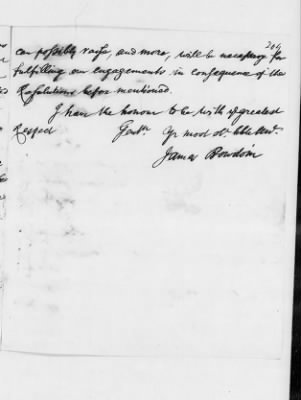 204
can possibly raise, and more, will be necessary for
fulfilling our engagements in consequence of the
Resolutions before mentioned.
I have the honour to be with ye greatest
Respect Gentn. Yr most obt. hble servt.
James Bowdoin